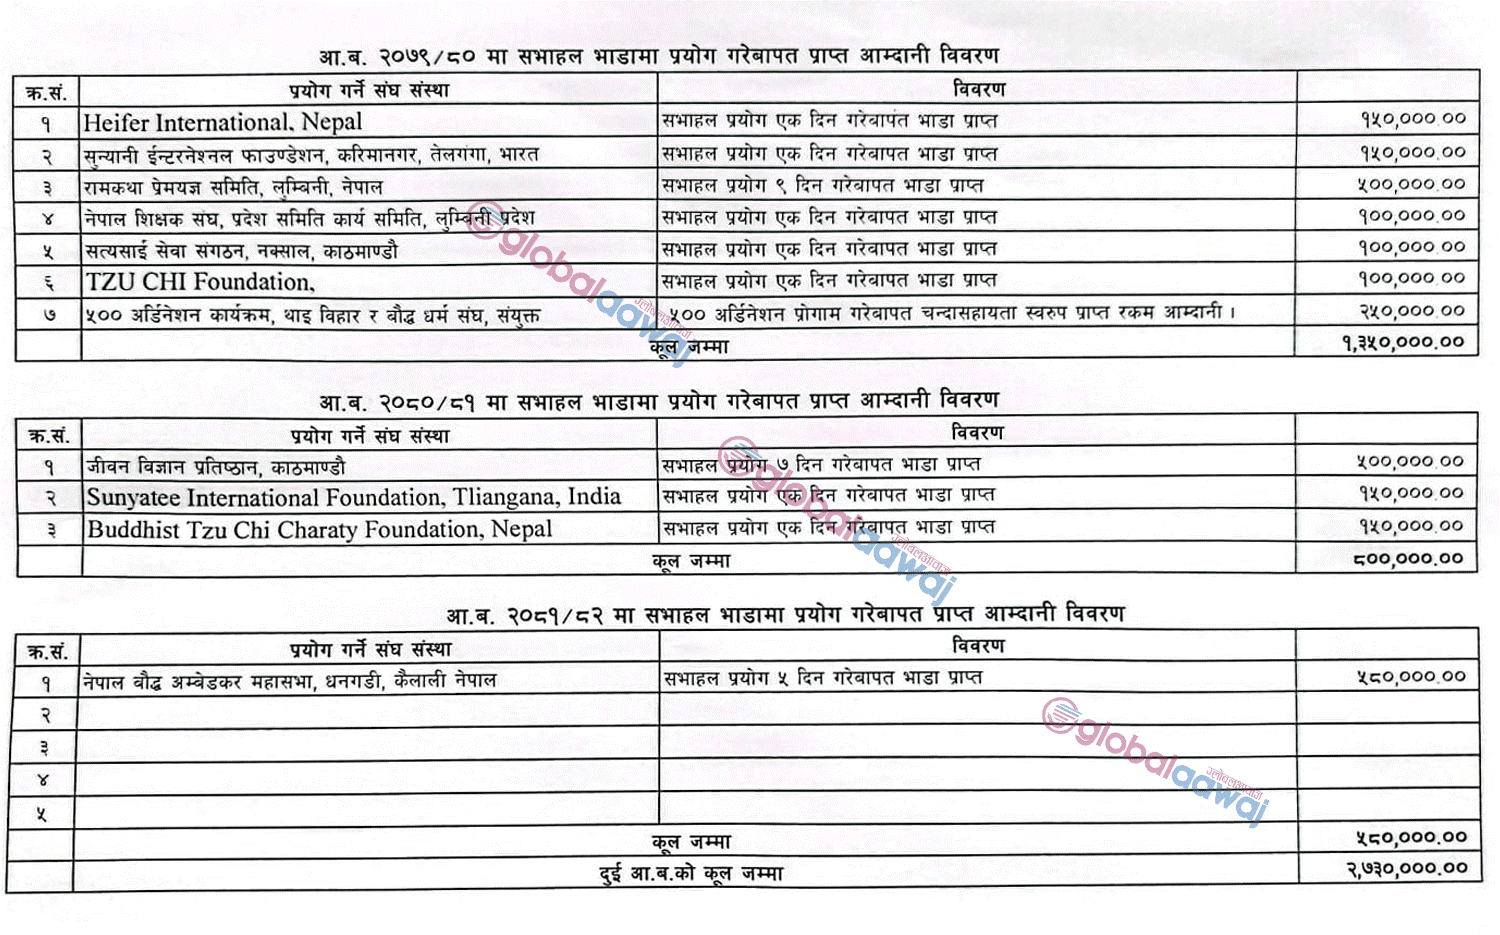 आ.ब. २०७९/८० मा सभाहल भाडामा प्रयोग गरेबापत प्राप्त आम्दानी विवरण
क्र.सं. प्रयोग गर्ने संघ संस्था विवरण
१ Heifer International, Nepal सभाहल प्रयोग एक दिन गरेबापंत भाडा प्राप्त १५०,०००.००
२ सुन्यानी ईन्टरनेश्नल फाउण्डेशन, करिमानगर, तेलगंगा, भारत सभाहल प्रयोग एक दिन गरेबापत भाडा प्राप्त १५०,०००.००
३ रामकथा प्रेमयज्ञ समिति, लुम्बिनी, नेपाल सभाहल प्रयोग ९ दिन गरेबापत भाडा प्राप्त ५००,०००.००
४ नेपाल शिक्षक संघ, प्रदेश समिति कार्य समिति, लुम्बिनी प्रदेश सभाहल प्रयोग एक दिन गरेबापत भाडा प्राप्त १००,०००.००
५ सत्यसाई सेवा संगठन, नक्साल, काठमाण्डौ सभाहल प्रयोग एक दिन गरेबापत भाडा प्राप्त १००,०००.००
६ TZU CHI Foundation, सभाहल प्रयोग एक दिन गरेबापत भाडा प्राप्त १००,०००.००
७ ५०० अर्डिनेशन कार्यक्रम, थाइ विहार र बौद्ध धर्म संघ, संयुक्त ५०० अर्डिनेशन प्रोगाम गरेबापत चन्दासहायता स्वरुप प्राप्त रकम आम्दानी । २५०,०००.००
कूल जम्मा १,३५०,०००.००
globalaawaj
ग्लोबलआवाज
आ.ब. २०८०/८१ मा सभाहल भाडामा प्रयोग गरेबापत प्राप्त आम्दानी विवरण
क्र.सं. प्रयोग गर्ने संघ संस्था विवरण
१ जीवन विज्ञान प्रतिष्ठान, काठमाण्डौ सभाहल प्रयोग ७ दिन गरेबापत भाडा प्राप्त ५००,०००.००
२ Sunyatee International Foundation, Tliangana, India सभाहल प्रयोग एक दिन गरेबापत भाडा प्राप्त १५०,०००.००
३ Buddhist Tzu Chi Charaty Foundation, Nepal सभाहल प्रयोग एक दिन गरेबापत भाडा प्राप्त १५०,०००.००
कूल जम्मा ८००,०००.००
globalaawaj
ग्लोबलआवाज
आ.ब. २०८१/८२ मा सभाहल भाडामा प्रयोग गरेबापत प्राप्त आम्दानी विवरण
क्र.सं. प्रयोग गर्ने संघ संस्था विवरण
१ नेपाल बौद्ध अम्बेडकर महासभा, धनगडी, कैलाली नेपाल सभाहल प्रयोग ५ दिन गरेबापत भाडा प्राप्त ५८०,०००.००
२
३
४
५
globalaawaj
ग्लोबलआवाज
कूल जम्मा ५८०,०००.००
दुई आ.ब.को कूल जम्मा २,७३०,०००.००